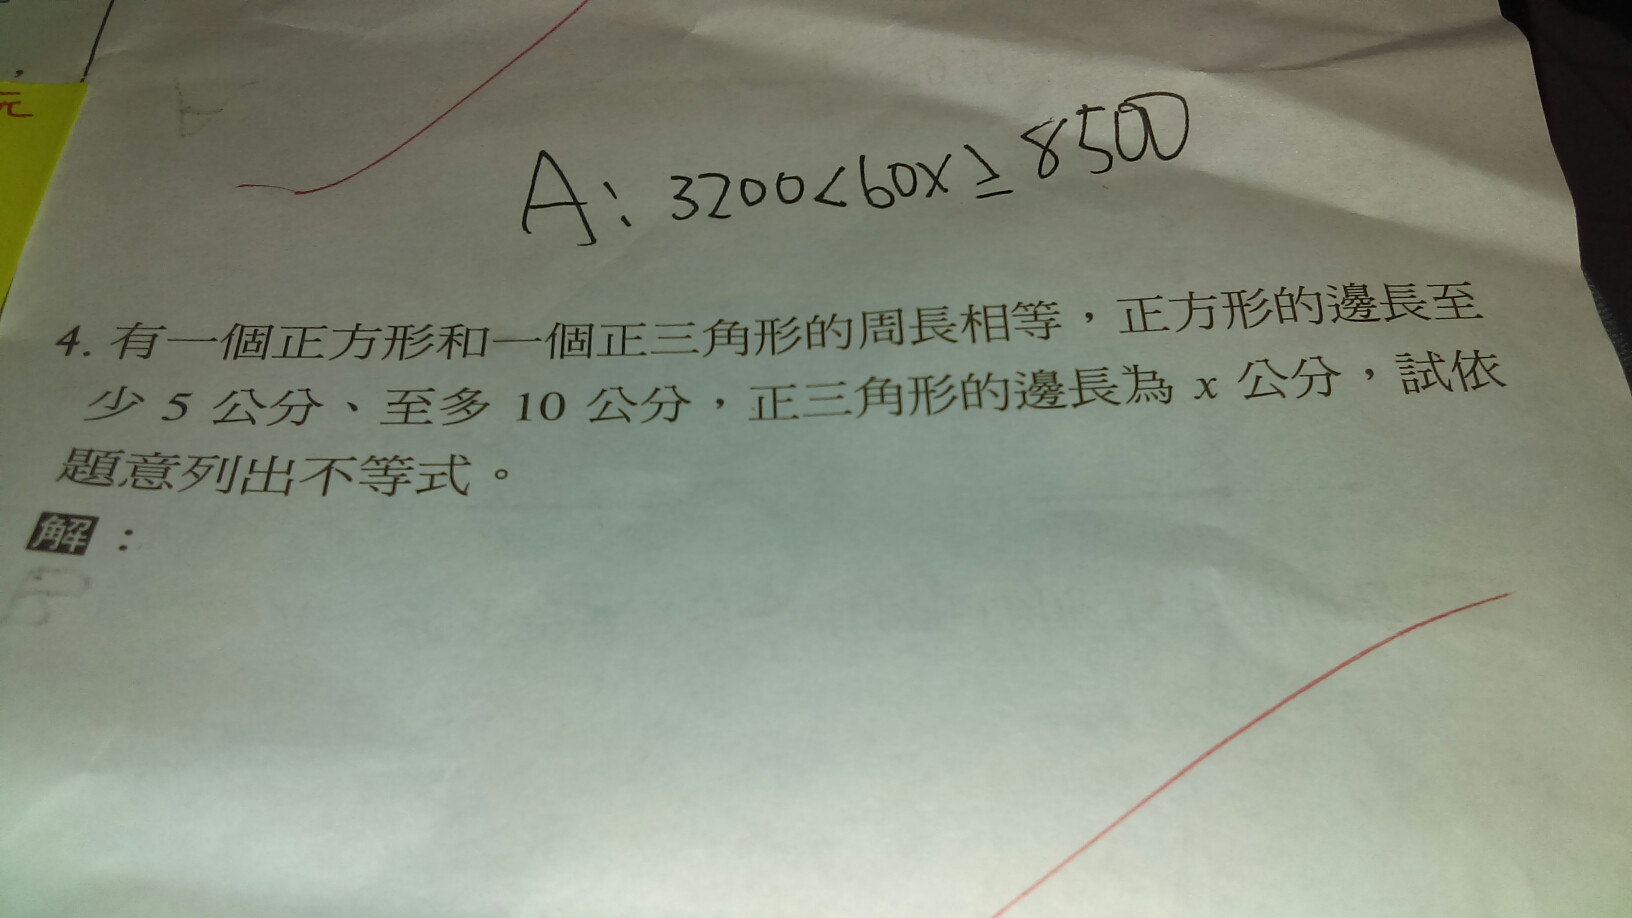 元
A: 3200<60x≥8500
4. 有一個正方形和一個正三角形的周長相等，正方形的邊長至
少 5 公分、至多 10 公分，正三角形的邊長為 x 公分，試依
題意列出不等式。
解：